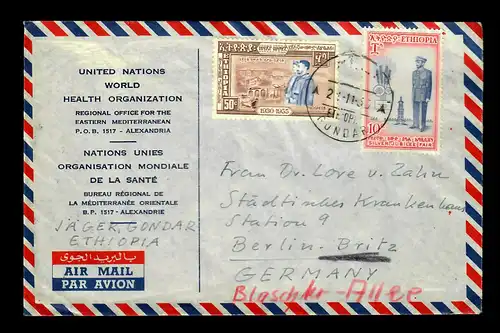 UNITED NATIONS
WORLD
HEALTH ORGANIZATION
REGIONAL OFFICE FOR THE
EASTERN MEDITERRANEAN
P.O.B. 1517 - ALEXANDRIA
NATIONS UNIES
ORGANISATION MONDIALE
DE LA SANTÉ
BUREAU RÉGIONAL DE
LA MÉDITERRANÉE ORIENTALE
B.P. 1517 - ALEXANDRIE
JÄGER, GONDAR
ETHIOPIA
بالبريد الجوى
AIR MAIL
PAR AVION
ETHIOPIA
50
1930-1955
ETHIOPIA
10
SILVER JUBILEE FAIR
GONDAR
Frau Dr. Lore v. Zahn
Städtisches Krankenhaus
Station 9
Berlin-Britz
GERMANY
Blaschko-Allee